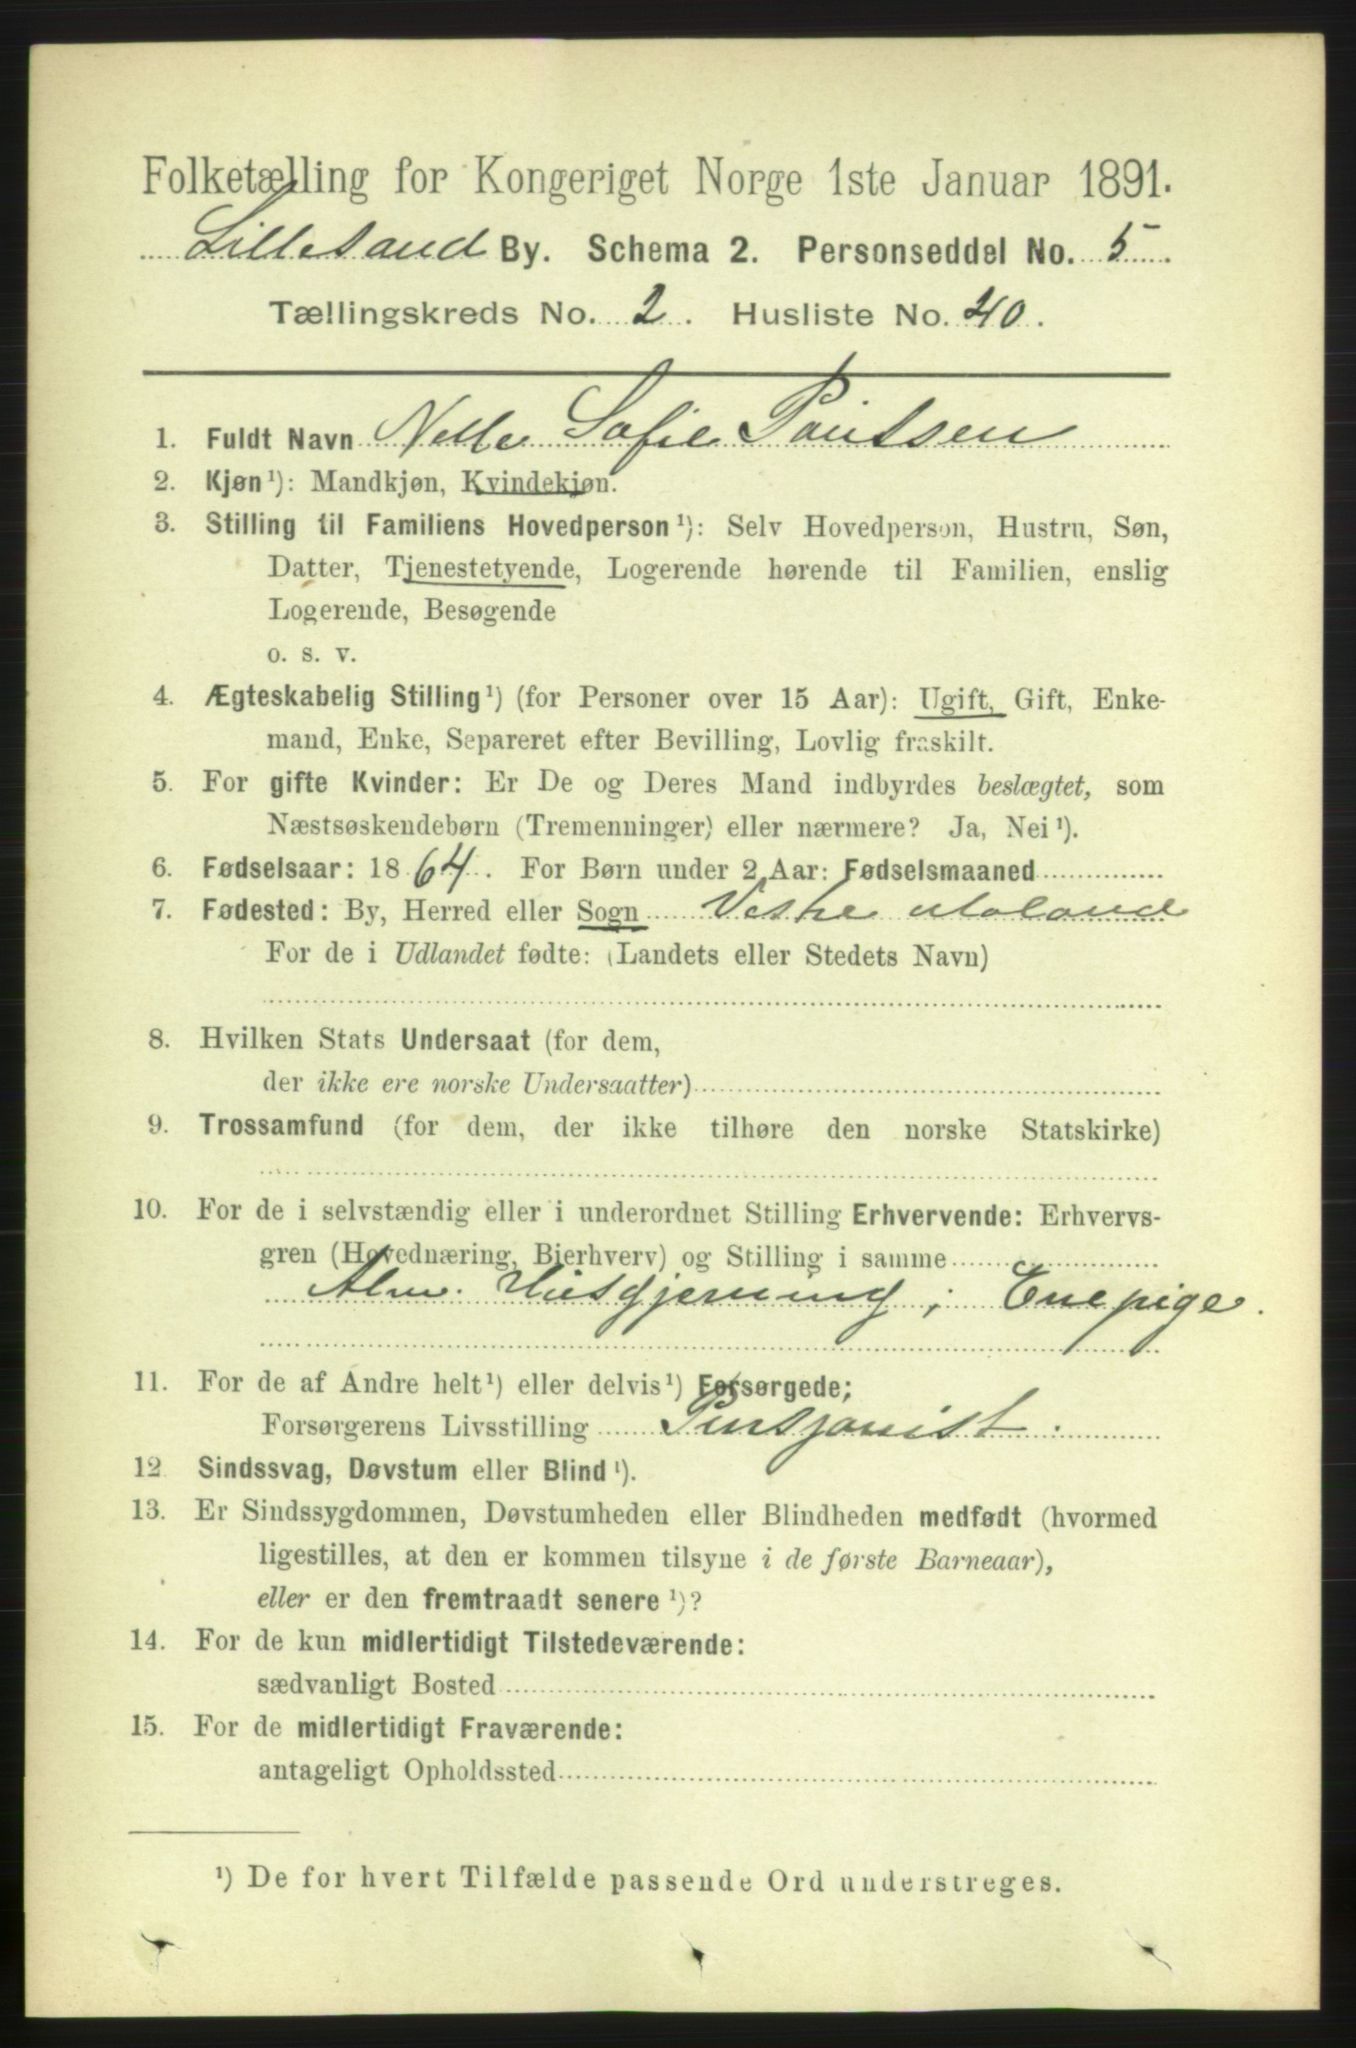 Folketælling for Kongeriget Norge 1ste Januar 1891.
Lillesand By. Schema 2. Personseddel No. 5
Tællingskreds No. 2. Husliste No. 40.
1. Fuldt Navn Nelle Sofie
2. Kjøn ¹): Mandkjøn, Kvindekjøn.
3. Stilling til Familiens Hovedperson ¹): Selv Hovedperson, Hustru, Søn,
Datter, Tjenestetyende, Logerende hørende til Familien, enslig
Logerende, Besøgende
o. s. v.
4. Ægteskabelig Stilling ¹) (for Personer over 15 Aar): Ugift, Gift, Enke-
mand, Enke, Separeret efter Bevilling, Lovlig fraskilt.
5. For gifte Kvinder: Er De og Deres Mand indbyrdes beslægtet, som
Næstsøskendebørn (Tremenninger) eller nærmere? Ja, Nei ¹).
6. Fødselsaar: 1864. For Børn under 2 Aar: Fødselsmaaned
7. Fødested: By, Herred eller Sogn Vestre Moland
For de i Udlandet fødte: (Landets eller Stedets Navn)
8. Hvilken Stats Undersaat (for dem,
der ikke ere norske Undersaatter)
9. Trossamfund (for dem, der ikke tilhøre den norske Statskirke)
10. For de i selvstændig eller i underordnet Stilling Erhvervende: Erhvervs-
gren (Hovednæring, Bierhverv) og Stilling i samme
Alm. Husgjerning; Enepige.
11. For de af Andre helt ¹) eller delvis ¹) Forsørgede;
Forsørgerens Livsstilling Pensjonist.
12 Sindssvag, Døvstum eller Blind ¹).
13. Er Sindssygdommen, Døvstumheden eller Blindheden medfødt (hvormed
ligestilles, at den er kommen tilsyne i de første Barneaar),
eller er den fremtraadt senere ¹)?
14. For de kun midlertidigt Tilstedeværende:
sædvanligt Bosted
15. For de midlertidigt Fraværende:
antageligt Opholdssted
¹) De for hvert Tilfælde passende Ord understreges.